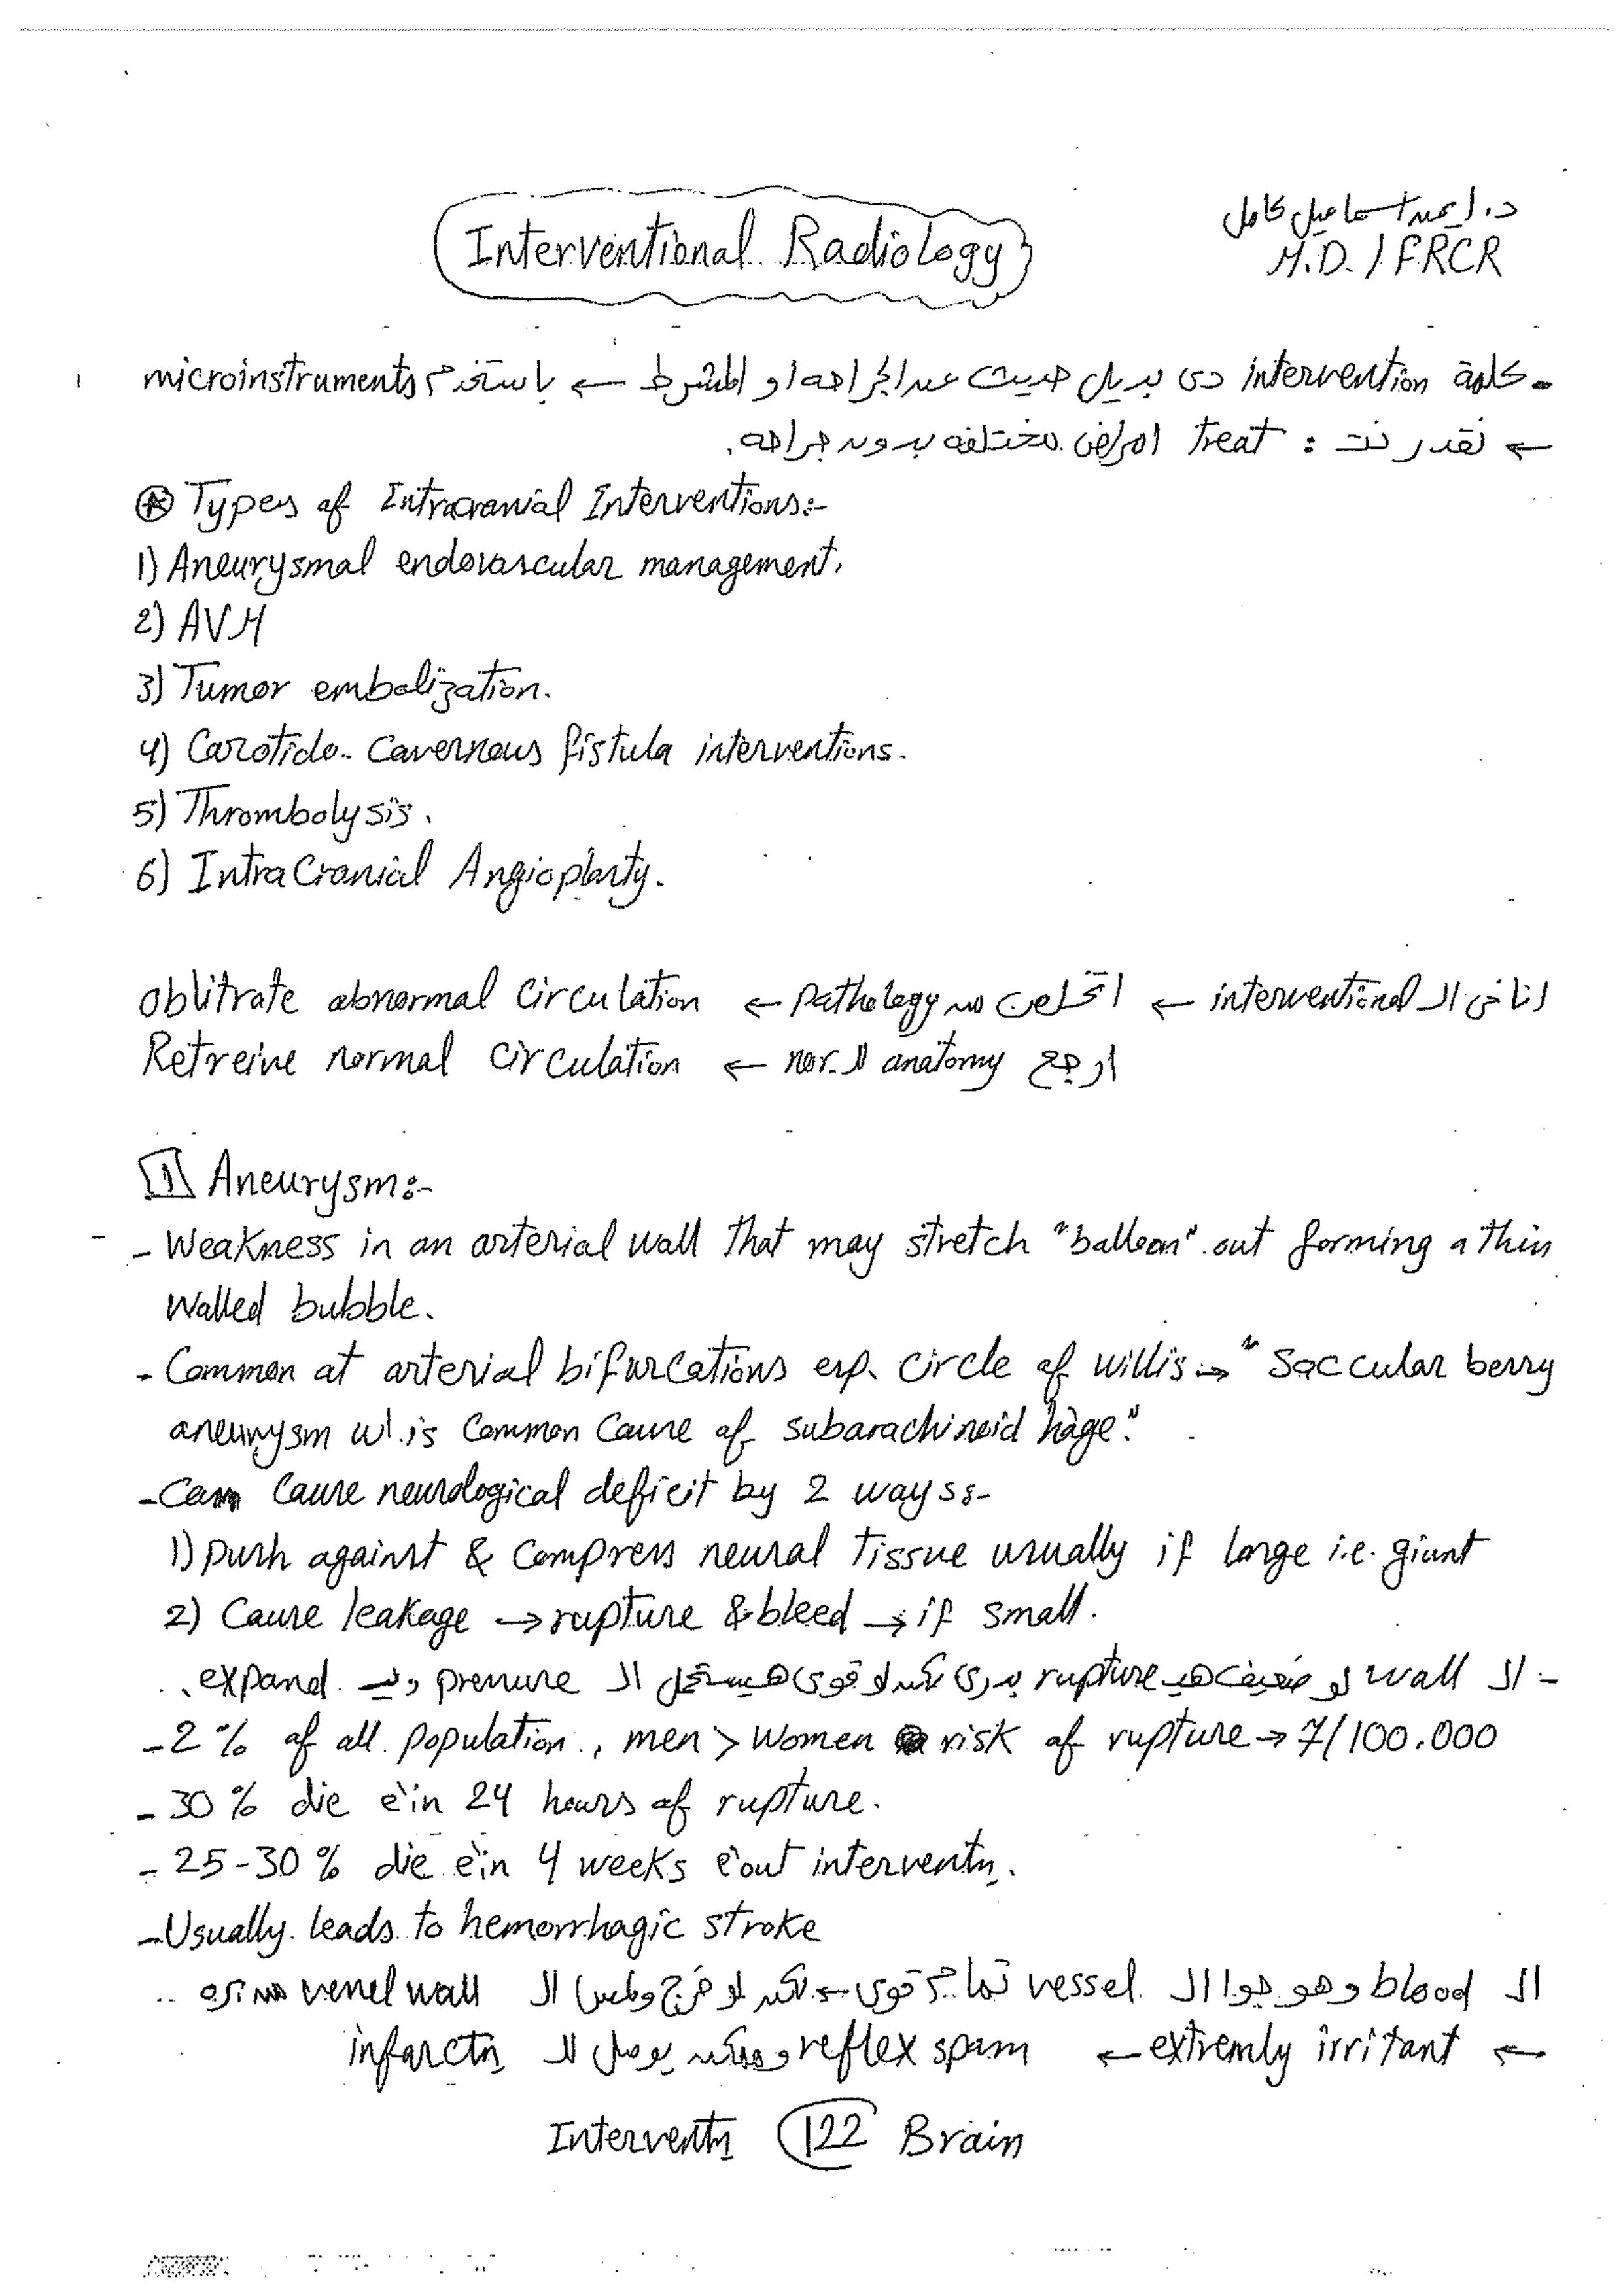 Interventional Radiology
د. اسماعيل كامل
M.D. / FRCR
- كلمة intervention دى بديل حديث عن الجراحه او المشرط ← باستخدم microinstruments
← نقدر نت : treat امراض مختلفه بدون جراحه.
⊛ Types of Intracranial Interventions:-
1) Aneurysmal endovascular management.
2) AVM
3) Tumor embolization.
4) Carotido-Cavernous fistula interventions.
5) Thrombolysis.
6) IntraCranial Angioplasty.
انا فى الـ interventional ← اتخلص من pathology ← Oblitrate abnormal circulation
ارجع nor. الـ anatomy ← Retreive normal circulation
1 Aneurysm:-
- Weakness in an arterial wall that may stretch "balloon" out forming a thin
walled bubble.
- Common at arterial bifurcations esp. circle of willis → "Saccular berry
aneurysm w'. is Common Cause of subarachinoid h'age."
- Can Cause neurological deficit by 2 ways:-
1) push against & Compress neural tissue usually if large i.e. giant
2) Cause leakage → rupture & bleed → if small.
- الـ wall لو ضعيف هيـ rupture بدرى لكن لو قوى هيستحمل الـ pressure ويـ expand.
- 2% of all population, men > women risk of rupture → 7/100.000
- 30% die e'in 24 hours of rupture.
- 25-30% die e'in 4 weeks e'out interventn.
- Usually leads to hemorrhagic stroke
الـ blood وهو جوا الـ vessel تمام قوى ← لكن لو خرج ولمس الـ vessel wall من بره
← extremly irritant ← reflex spasm وممكن يوصل لـ infarctn
Interventn 122 Brain